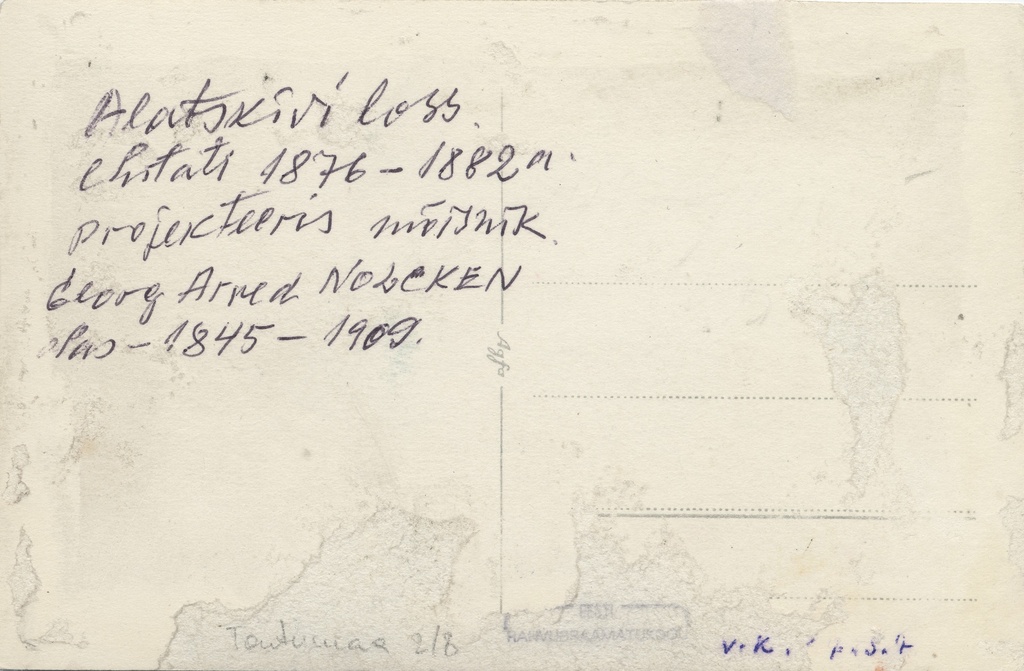 Alatskivi loss.
Ehitati 1876 – 1882 a.
projekteeris mõisnik.
Georg Arved NOLCKEN
elas – 1845 – 1909.
Agfa
Tartumaa 2/8
RAHVUSRAAMATUKOGU